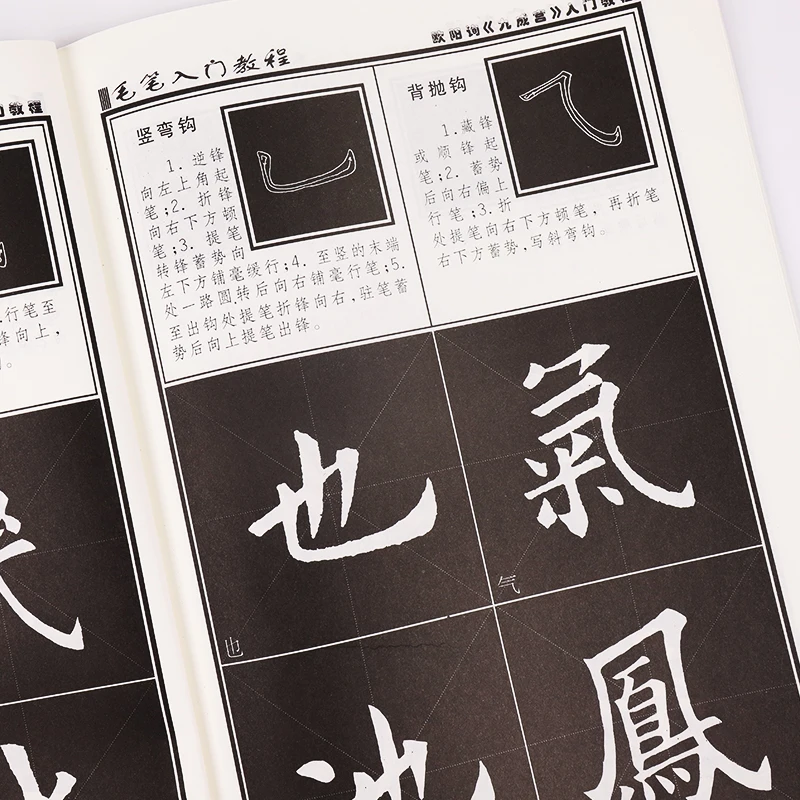 毛笔入门教程
欧阳询《九成宫》入门教程
竖弯钩
1. 逆锋
向左上角起
笔;2. 折锋
向右下方顿
笔;3. 提笔
转锋蓄势向
左下方铺毫缓行;4. 至竖的末端
处一路圆转后向右铺毫行笔;5.
至出钩处提笔折锋向右,驻笔蓄
势后向上提笔出锋。
背抛钩
1. 藏锋
或顺锋起
笔;2. 蓄势
后向右偏上
行笔;3. 折
处提笔向右下方顿笔,再折笔
右下方蓄势,写斜弯钩。
也
氣
也
气
池
鳳
教程
行笔至
锋向上,